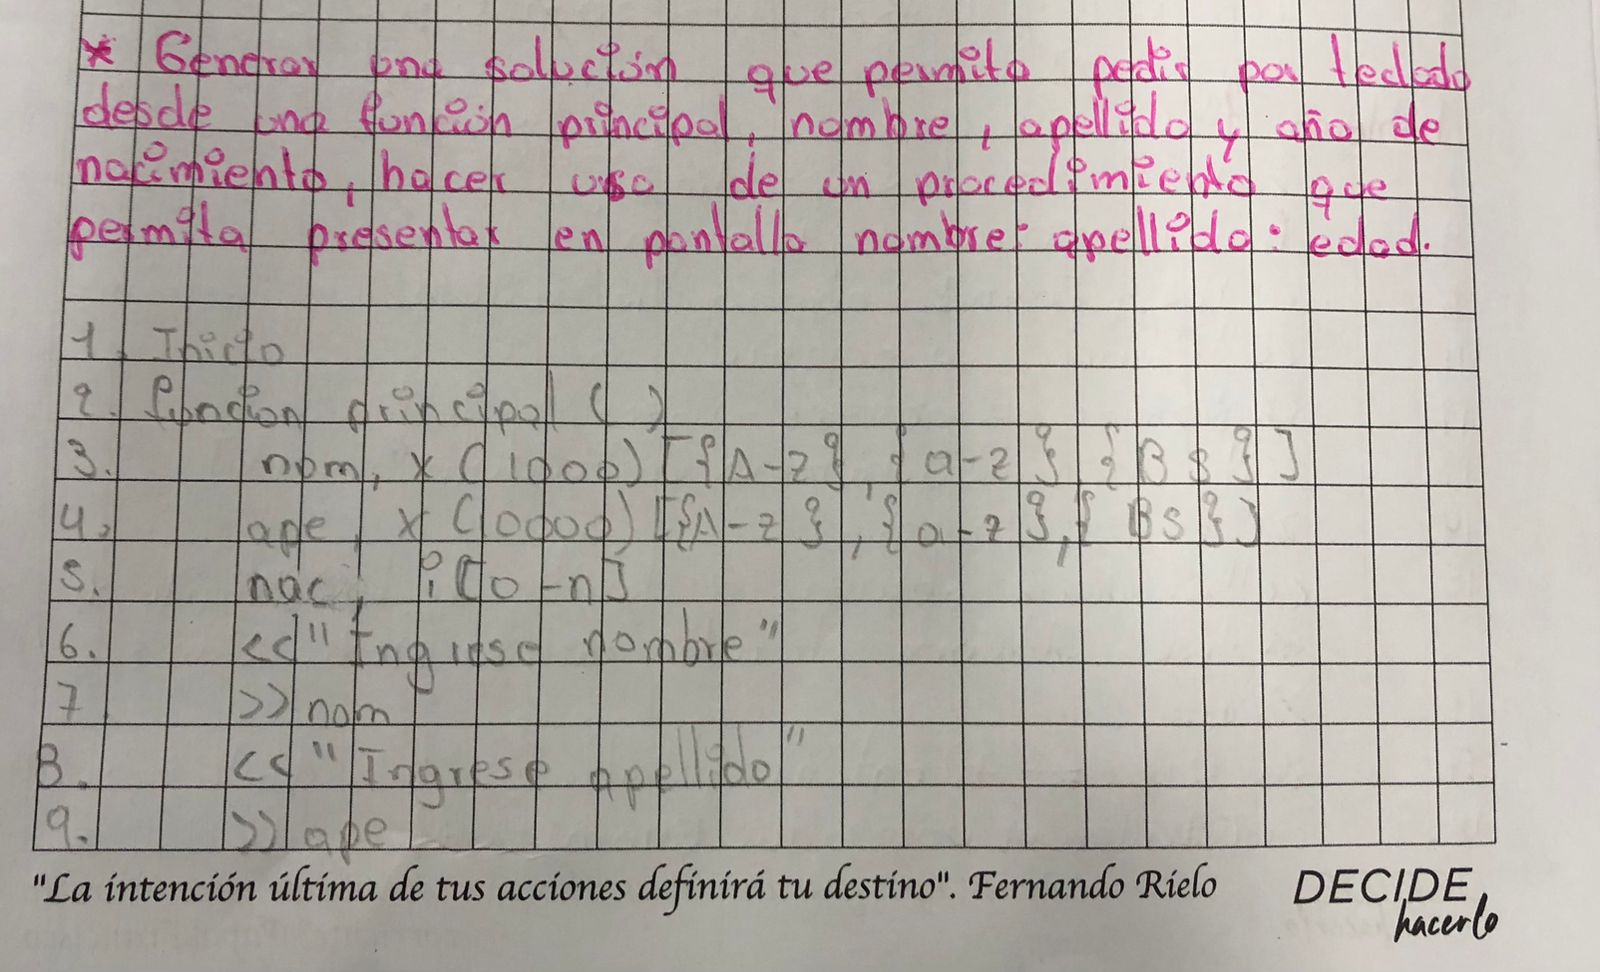 * Generar una solución que permita pedir por teclado
desde una función principal, nombre, apellido y año de
nacimiento, hacer uso de un procedimiento que
permita presentar en pantalla nombre: apellido: edad.
1. Inicio
2. función principal ( )
3. nom, x (1000) [{A-z}, {a-z}, {BS}]
4. ape, x (1000) [{A-z}, {a-z}, {BS}]
5. nac, i [0-n]
6. << "Ingrese nombre"
7 >> nom
8. << "Ingrese apellido"
9. >> ape
"La intención última de tus acciones definirá tu destino". Fernando Rielo
DECIDE,
hacerlo